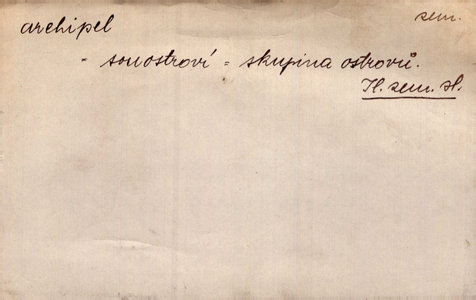 archipel
zem.
- souostroví = skupina ostrovů.
Tl. zem. sl.